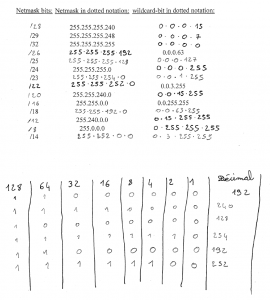 Netmask bits: Netmask in dotted notation: wildcard-bit in dotted notation:
/28 255.255.255.240 0.0.0.15
/29 255.255.255.248 0.0.0.7
/32 255.255.255.255 0.0.0.0
/26 255.255.255.192 0.0.0.63
/25 255.255.255.128 0.0.0.127
/24 255.255.255.0 0.0.0.255
/23 255.255.254.0 0.0.1.255
/22 255.255.252.0 0.0.3.255
/20 255.255.240.0 0.0.15.255
/16 255.255.0.0 0.0.255.255
/18 255.255.192.0 0.0.63.255
/12 255.240.0.0 0.15.255.255
/8 255.0.0.0 0.255.255.255
/14 255.252.0.0 0.3.255.255
Decimal
128 64 32 16 8 4 2 1
1 1 0 0 0 0 0 0 192
1 1 1 1 0 0 0 0 240
1 0 0 0 0 0 0 0 128
1 1 1 1 1 1 1 0 254
1 1 0 0 0 0 0 0 192
1 1 1 1 1 1 0 0 252